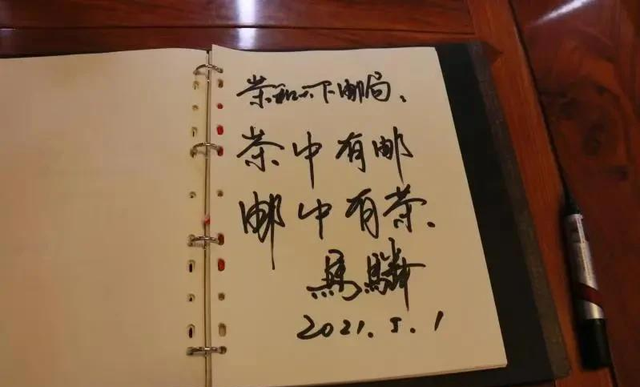 茶和天下邮局、
茶中有邮
邮中有茶.
馬
2021.5.1